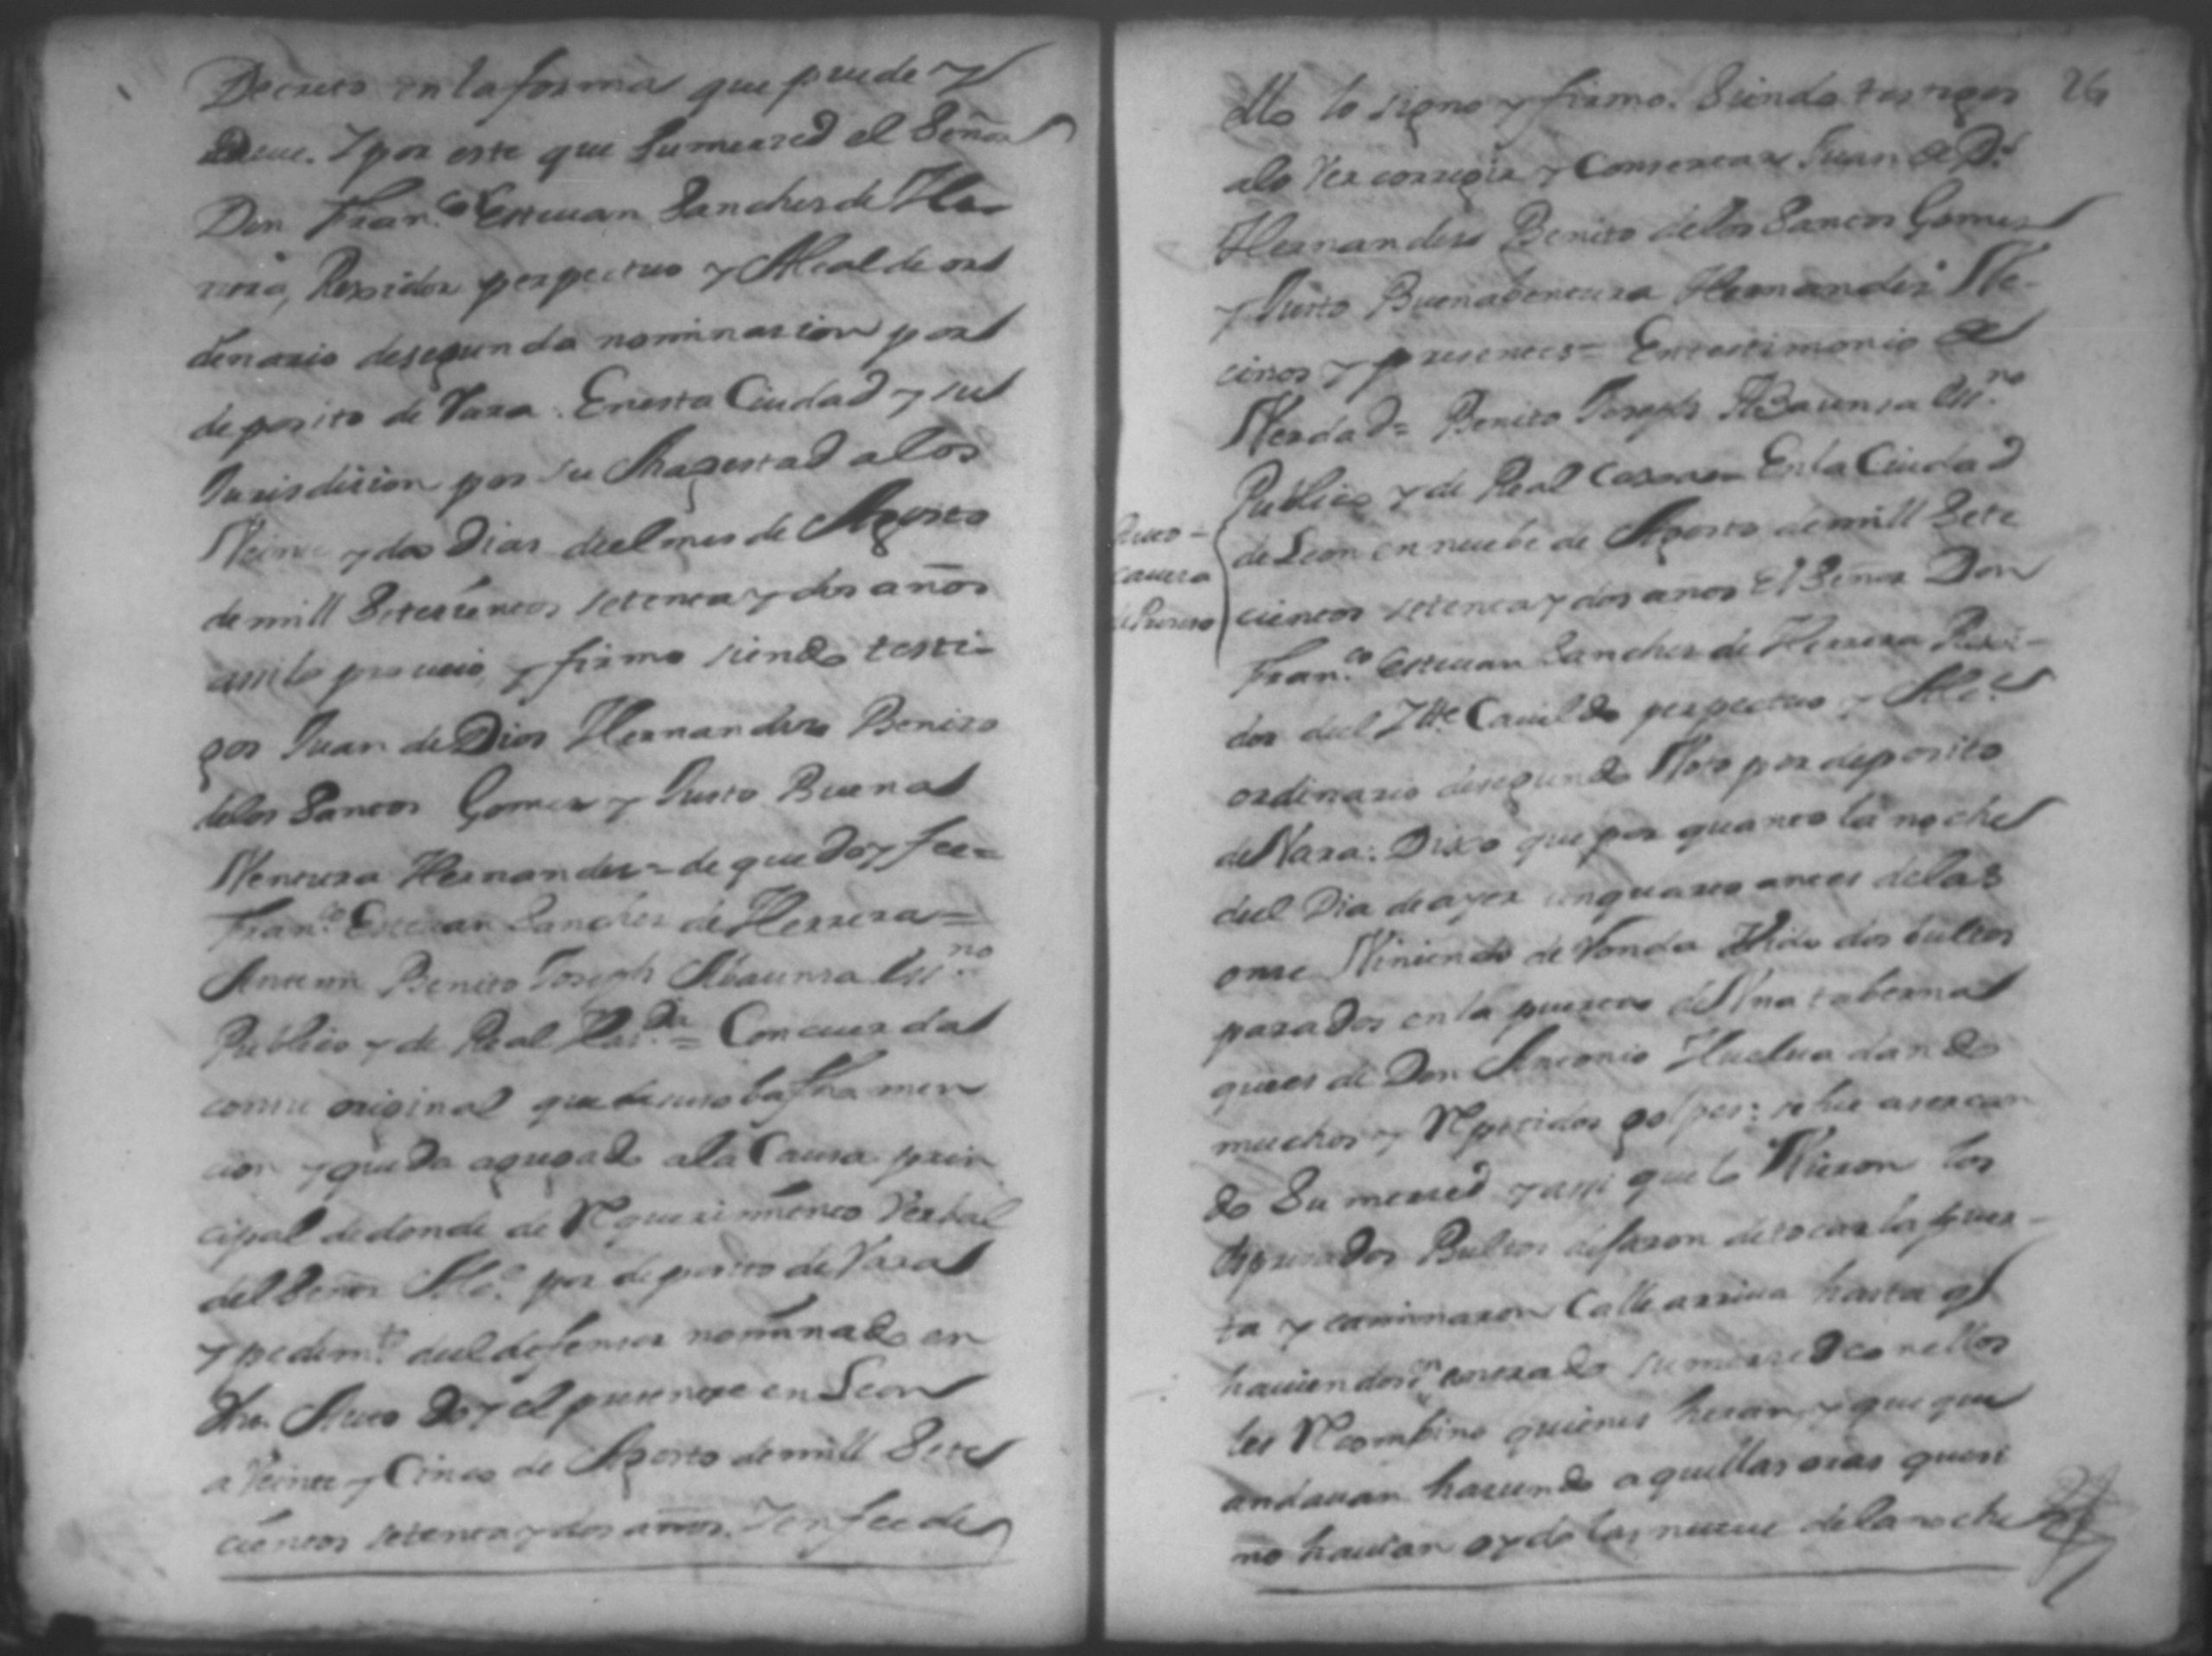 Decreto en la forma que puede y
deue. Y por este que su merced el Señor
Don Fran.co Esteuan Sanches de He-
rrera, Rexidor perpetuo y Alcalde or
denario de segunda nominasion por
deposito de Vara. En esta Ciudad y su
Jurisdision por su Magestad a los
Veinte y dos Dias deel mes de Agosto
de mill Setesientos setenta y dos años
assi lo proueio y firmo siendo testi-
gos Juan de Dios Hernandes Benito
delos Santos Gomes y Justo Buena
Ventura Hernandes = de que Doy fee =
Fran.co Esteuan Sanches de Herrera =
Antemi Benito Joseph Abaunsa Ess.no
Publico y de Real Has.da = Concuerda
con su original que de suso ba fha men
cion y queda agregado a la Causa prin
cipal de donde de Requerimiento Verbal
del Señor Alc.e por deposito de Vara
y pedim.to deel defensor nominado en
dho. Auto Doy el presente en Leon
a Veinte y Cinco de Agosto de mill Sete
cientos setenta y dos años. Y en fee de
26
ello lo signo y firmo. Siendo testigos
alo Ver corregir y Consertar Juan de D.s
Hernandes Benito delos Santos Gomes
y Justo Buenabentura Hernandes Ve-
cinos y presentes = En testimonio de
Verdad = Benito Joseph Abaunsa Ess.no
Publico y de Real Corona = En la Ciudad
Auto -
cauesa
de Proceso
de Leon en nuebe de Agosto de mill Sete
cientos setenta y dos años El Señor Don
Fran.co Esteuan Sanches de Herrera Rexi-
dor deel Ytt.e Cauildo perpectuo y Alc.e
ordinario de segundo Voto por deposito
de Vara: Dixo que por quanto la noche
deel Dia de ayer un quarto antes de las
onse Viniendo de Ronda Vido dos bultos
parados en la puerta de Una taberna
ques de Don Antonio Huelua dando
muchos y Repetidos golpes: se fue asercan
do Su mersed y assi que lo Vieron los
espresados Bultos dejaron de tocar la puer-
ta y caminaron Calle arriua hasta q.e
hauiendose encarado su mersed con ellos
les Recombino quienes heran, y que que
andauan hasiendo a aquellas oras que si
no hauian oydo las nueue de la noche